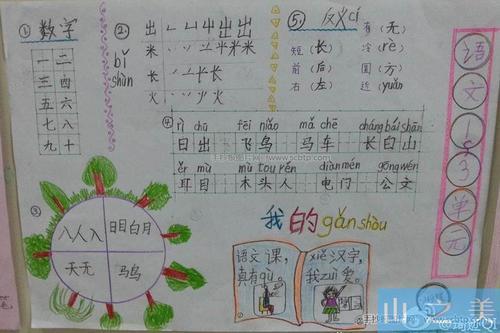 ① 数字
一 二
三 四
五 六
七 八
九 十
② bǐ shùn
出
米
长
火
⑤ 反义cí
有(无)
短(长) 冷(rè)
前(后) 圆(方)
右(左) 近(yuǎn)
④
rì chū fēi niǎo mǎ chē cháng bái shān
日出 飞鸟 马车 长白山
ěr mù mù tou rén diàn mén gōng wén
耳目 木头人 电门 公文
③
八人入
日目白月
天无
马鸟
我的gǎn shòu
语文课,
真有qù。
xiě汉字,
我zuì爱。
语文1~3单元
山之美